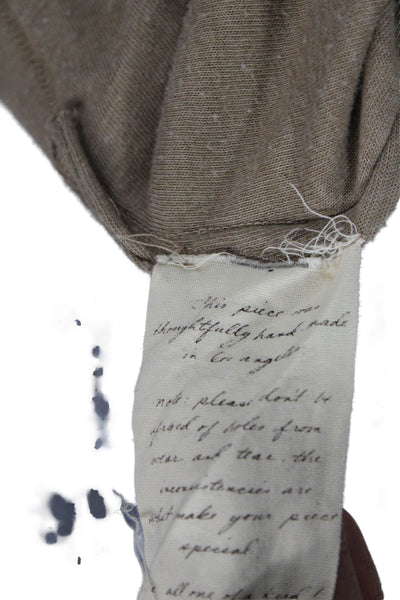 This piece was
thoughtfully hand made
in Los angeles
note: please don't be
afraid of holes from
wear and tear. the
inconsistencies are
what make your piece
special
all one of a kind!